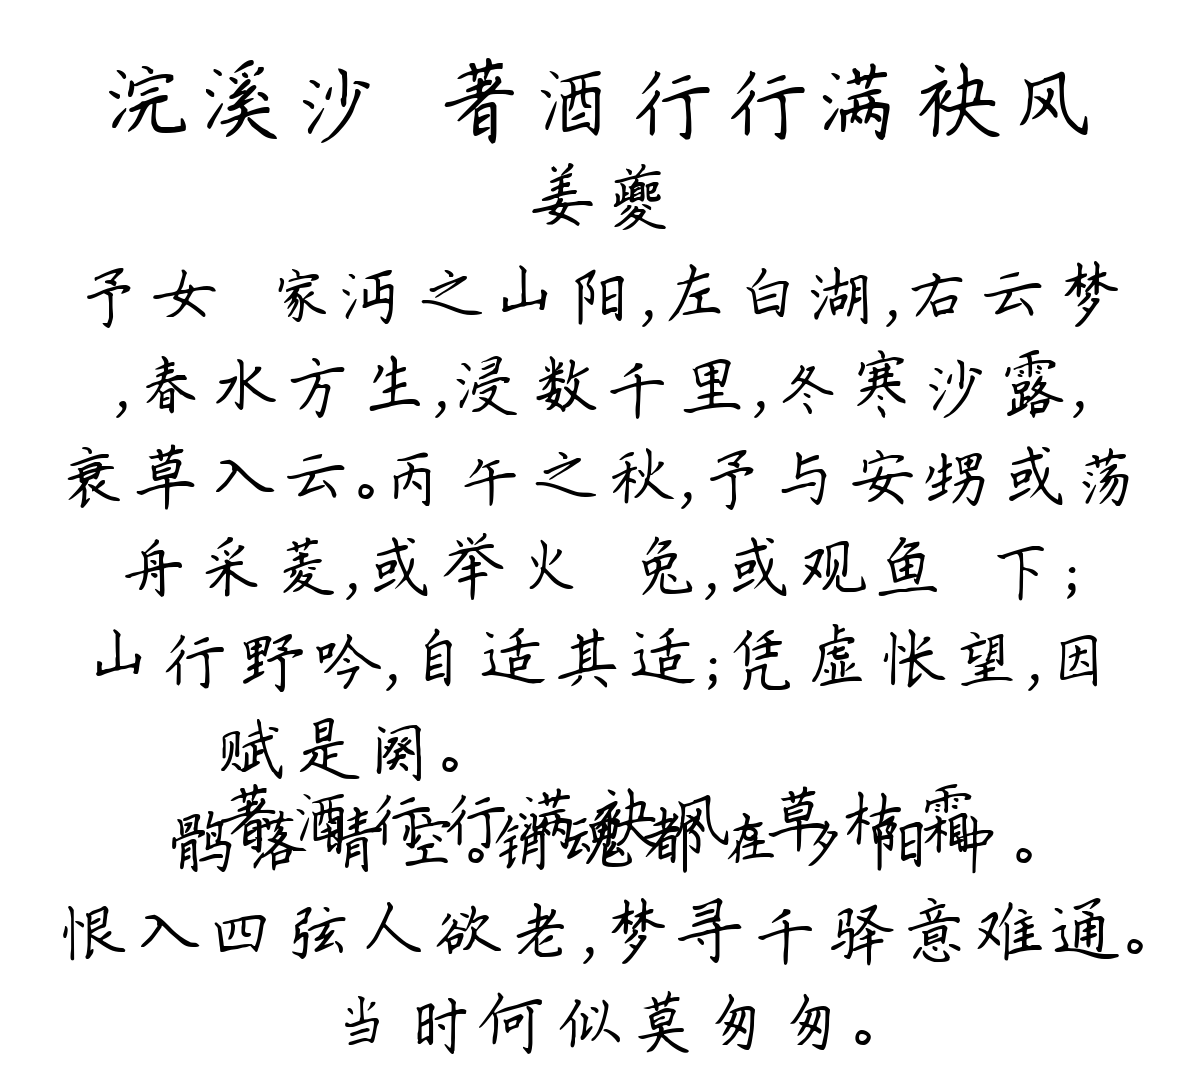 浣溪沙 著酒行行满袂风
姜夔
予女 家沔之山阳,左白湖,右云梦
,春水方生,浸数千里,冬寒沙露,
衰草入云。丙午之秋,予与安甥或荡
舟采菱,或举火 兔,或观鱼 下;
山行野吟,自适其适;凭虚怅望,因
赋是阕。
著酒行行满袂风 草枯霜
鹘落晴空。销魂都在夕阳中。
恨入四弦人欲老,梦寻千驿意难通。
当时何似莫匆匆。